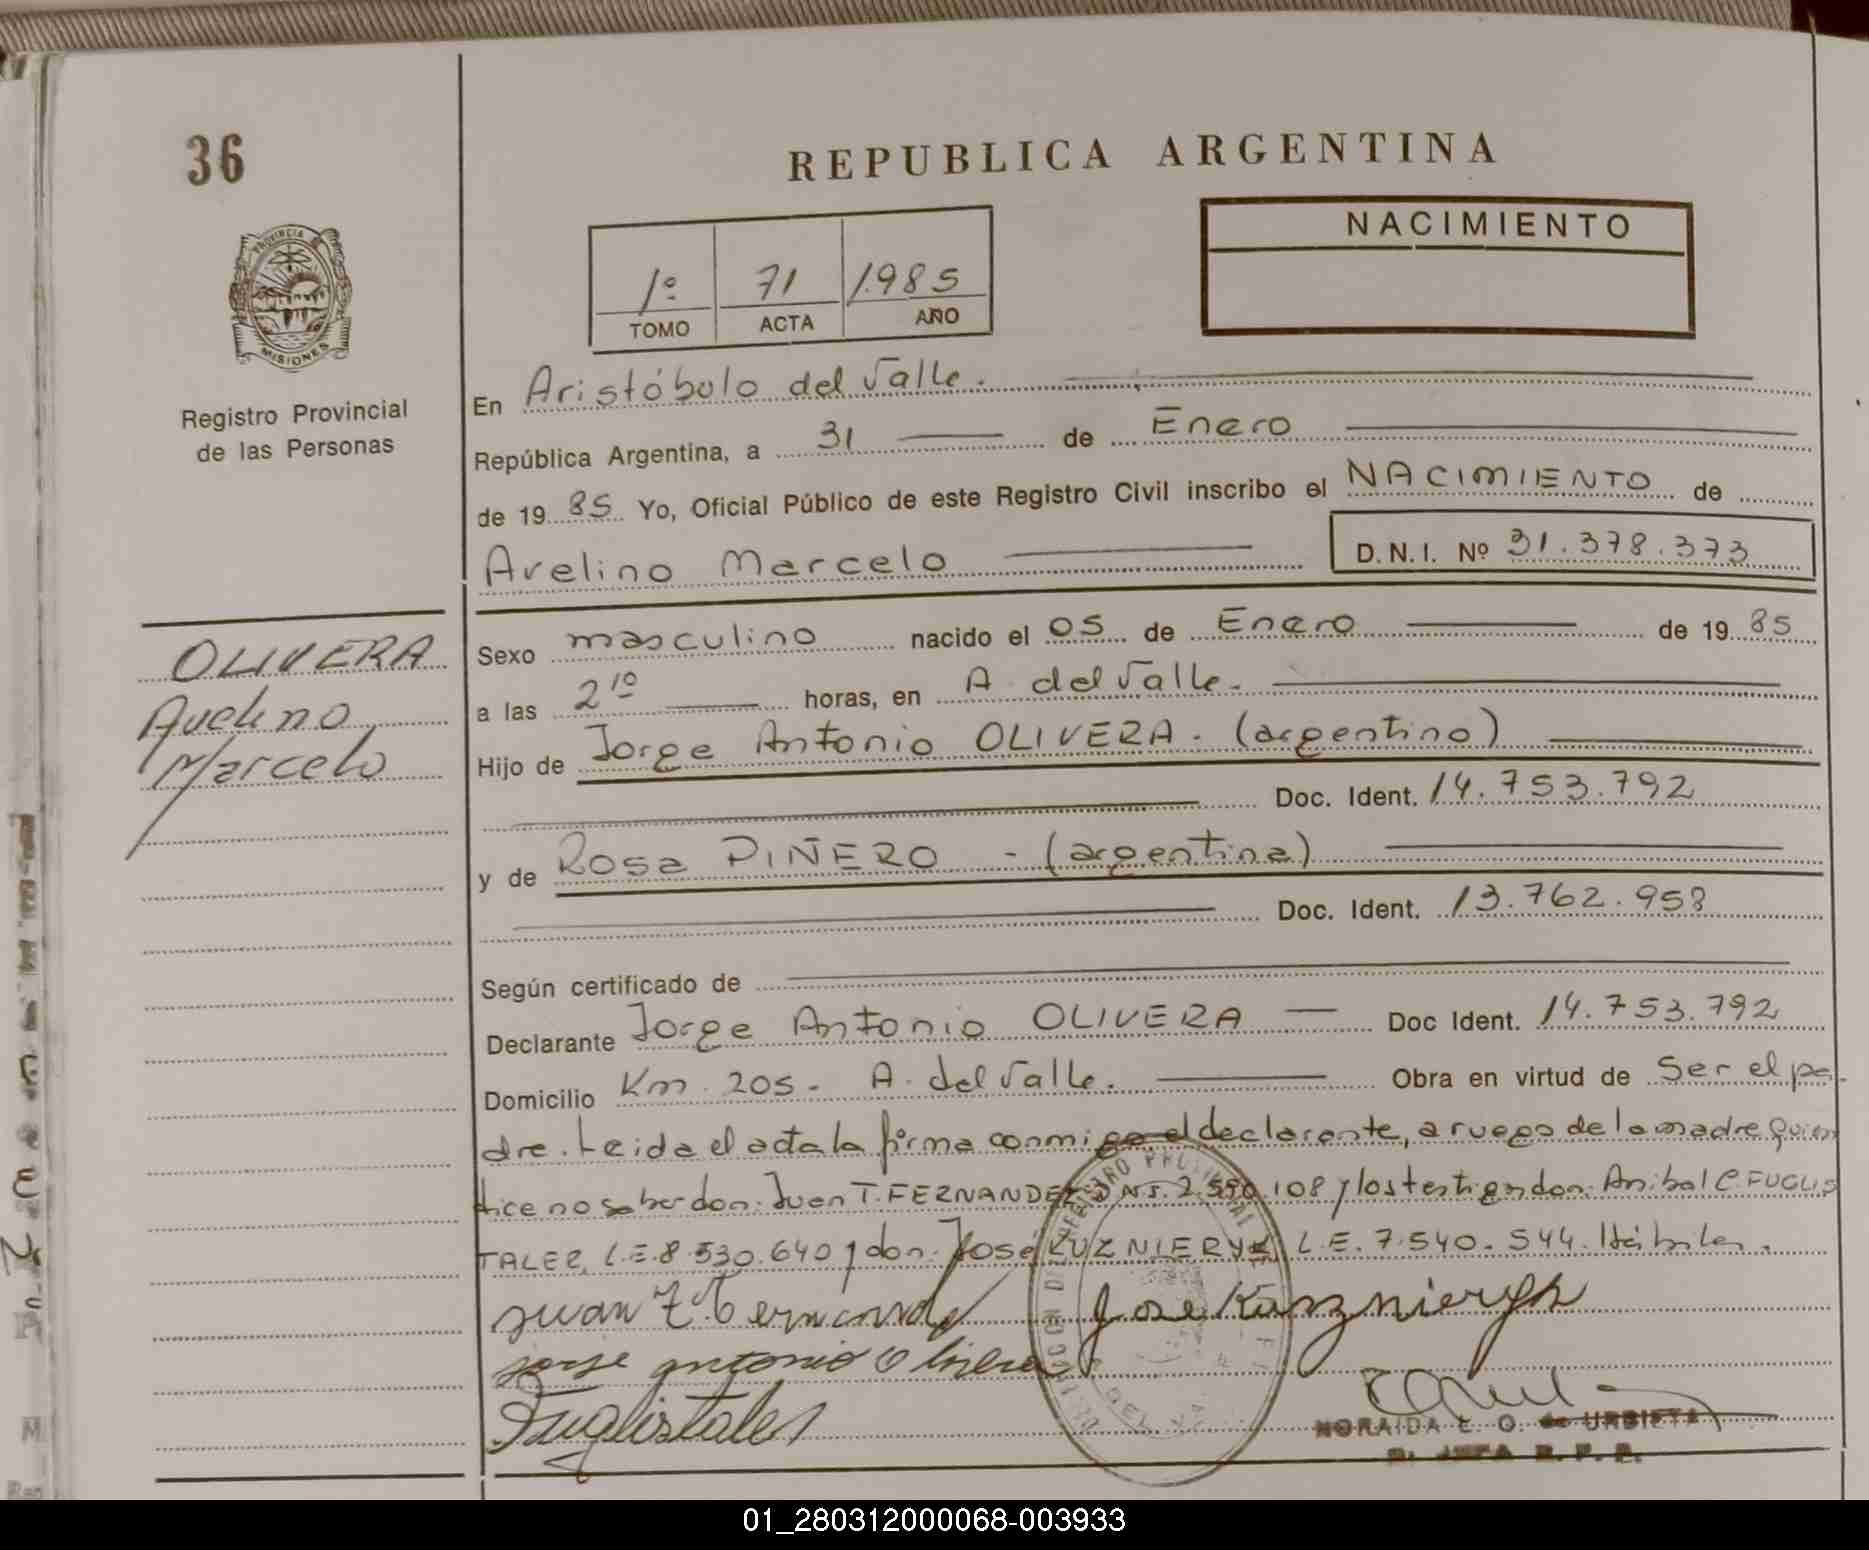 36
REPUBLICA ARGENTINA
PROVINCIA
MISIONES
Registro Provincial
de las Personas
1º 71 1.985
TOMO ACTA AÑO
NACIMIENTO
En Aristóbulo del Valle.
República Argentina, a 31 de Enero
de 19 85 Yo, Oficial Público de este Registro Civil inscribo el NACIMIENTO de
Avelino Marcelo D.N.I. Nº 31.378.373
OLIVERA
Avelino
Marcelo
Sexo masculino nacido el 05 de Enero de 19 85
a las 2¹⁰ horas, en A. del Valle.
Hijo de Jorge Antonio OLIVERA. (argentino)
Doc. Ident. 14.753.792
y de Rosa PIÑERO - (argentina)
Doc. Ident. 13.762.958
Según certificado de
Declarante Jorge Antonio OLIVERA Doc Ident. 14.753.792
Domicilio Km. 205. A. del Valle. Obra en virtud de Ser el pa-
dre. Leida el acta la firma conmigo el declarante, a ruego de la madre quien
dice no saber don: Juan T. FERNANDEZ D.N.I. 2.550.108 y los testigos don: Anibal C FUGLIS
TALER, L.E. 8.530.640 y don: José L.E. 7.540.544. Hábiles.
Juan T. Fernandez
jorge antonio Olivera
Fuglistaler
NORAIDA E. O. de URBIETA
D. JEFA R. P. P.
01_280312000068-003933